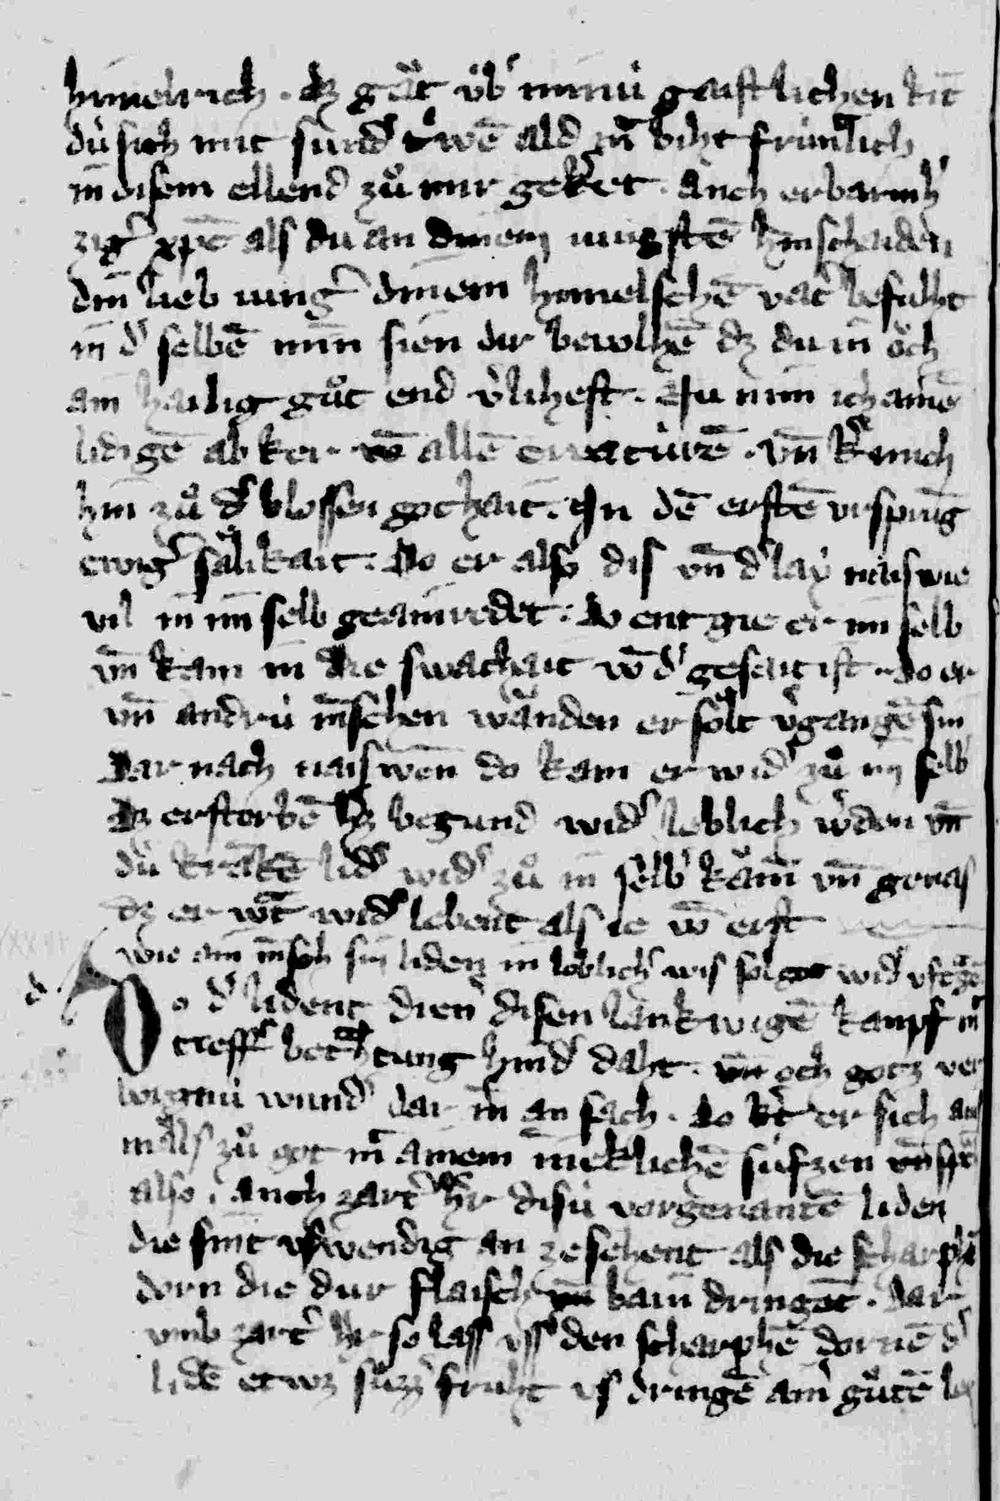 himelrich . dz gat úb minú gaistlichen kīt
dú sich mit sund trwē ald in biht frúntlich
in disem ellend zů mir geket . Ach erbarmh
zig xpē als du an dinem iungstē hinscheiden
din lieb iunger dinem himelschē vatter befulht
in d selbē minn sien dir bevolhē dz du in öch
ain hailig gůt end vlihest . Nu nim ich ainē
ledigē ab ker vō allē creaturē . vn̄ ker mich
hin zů d blossen gothait . In dē erstē ursprūg
ewiger sälikait . Do er also dis vn̄ d lay neiswie
vil in im selb geainredet . do entgie er im selb
vn̄ kam in die swachait vō d geseit ist . do er
vn̄ andrú mēschen wanden er sölt vgangē sin
Dar nach naiswen do kam er wid zů im selb
dz ersterbē hz begund wid leblich wden vn̄
dú krankē lid wid zů in selb kamn vn̄ genas
dz er wt wid lebent als ie vō erst
wie ain mēsch sin liden in loblich wis sol got wid uftgē
Do d lident dien disen lankwigē kampf in
treff betrahtung hind daht . vn̄ och gotz ver
borgnú wund dar in an sach . do kert er sich ains
mals zů got in ainem ineklichē súfzen vn̄ sprach
also . Ach zart her disú vorgenantē liden
die sint uswendig an ze sehent als die scharphē
dorn die dur flaisch vn̄ bain dringēt . dar
umb zart hr so lass uss den scharphē dornē d
lidē etwz süzz fruht us dringē ain gůtē